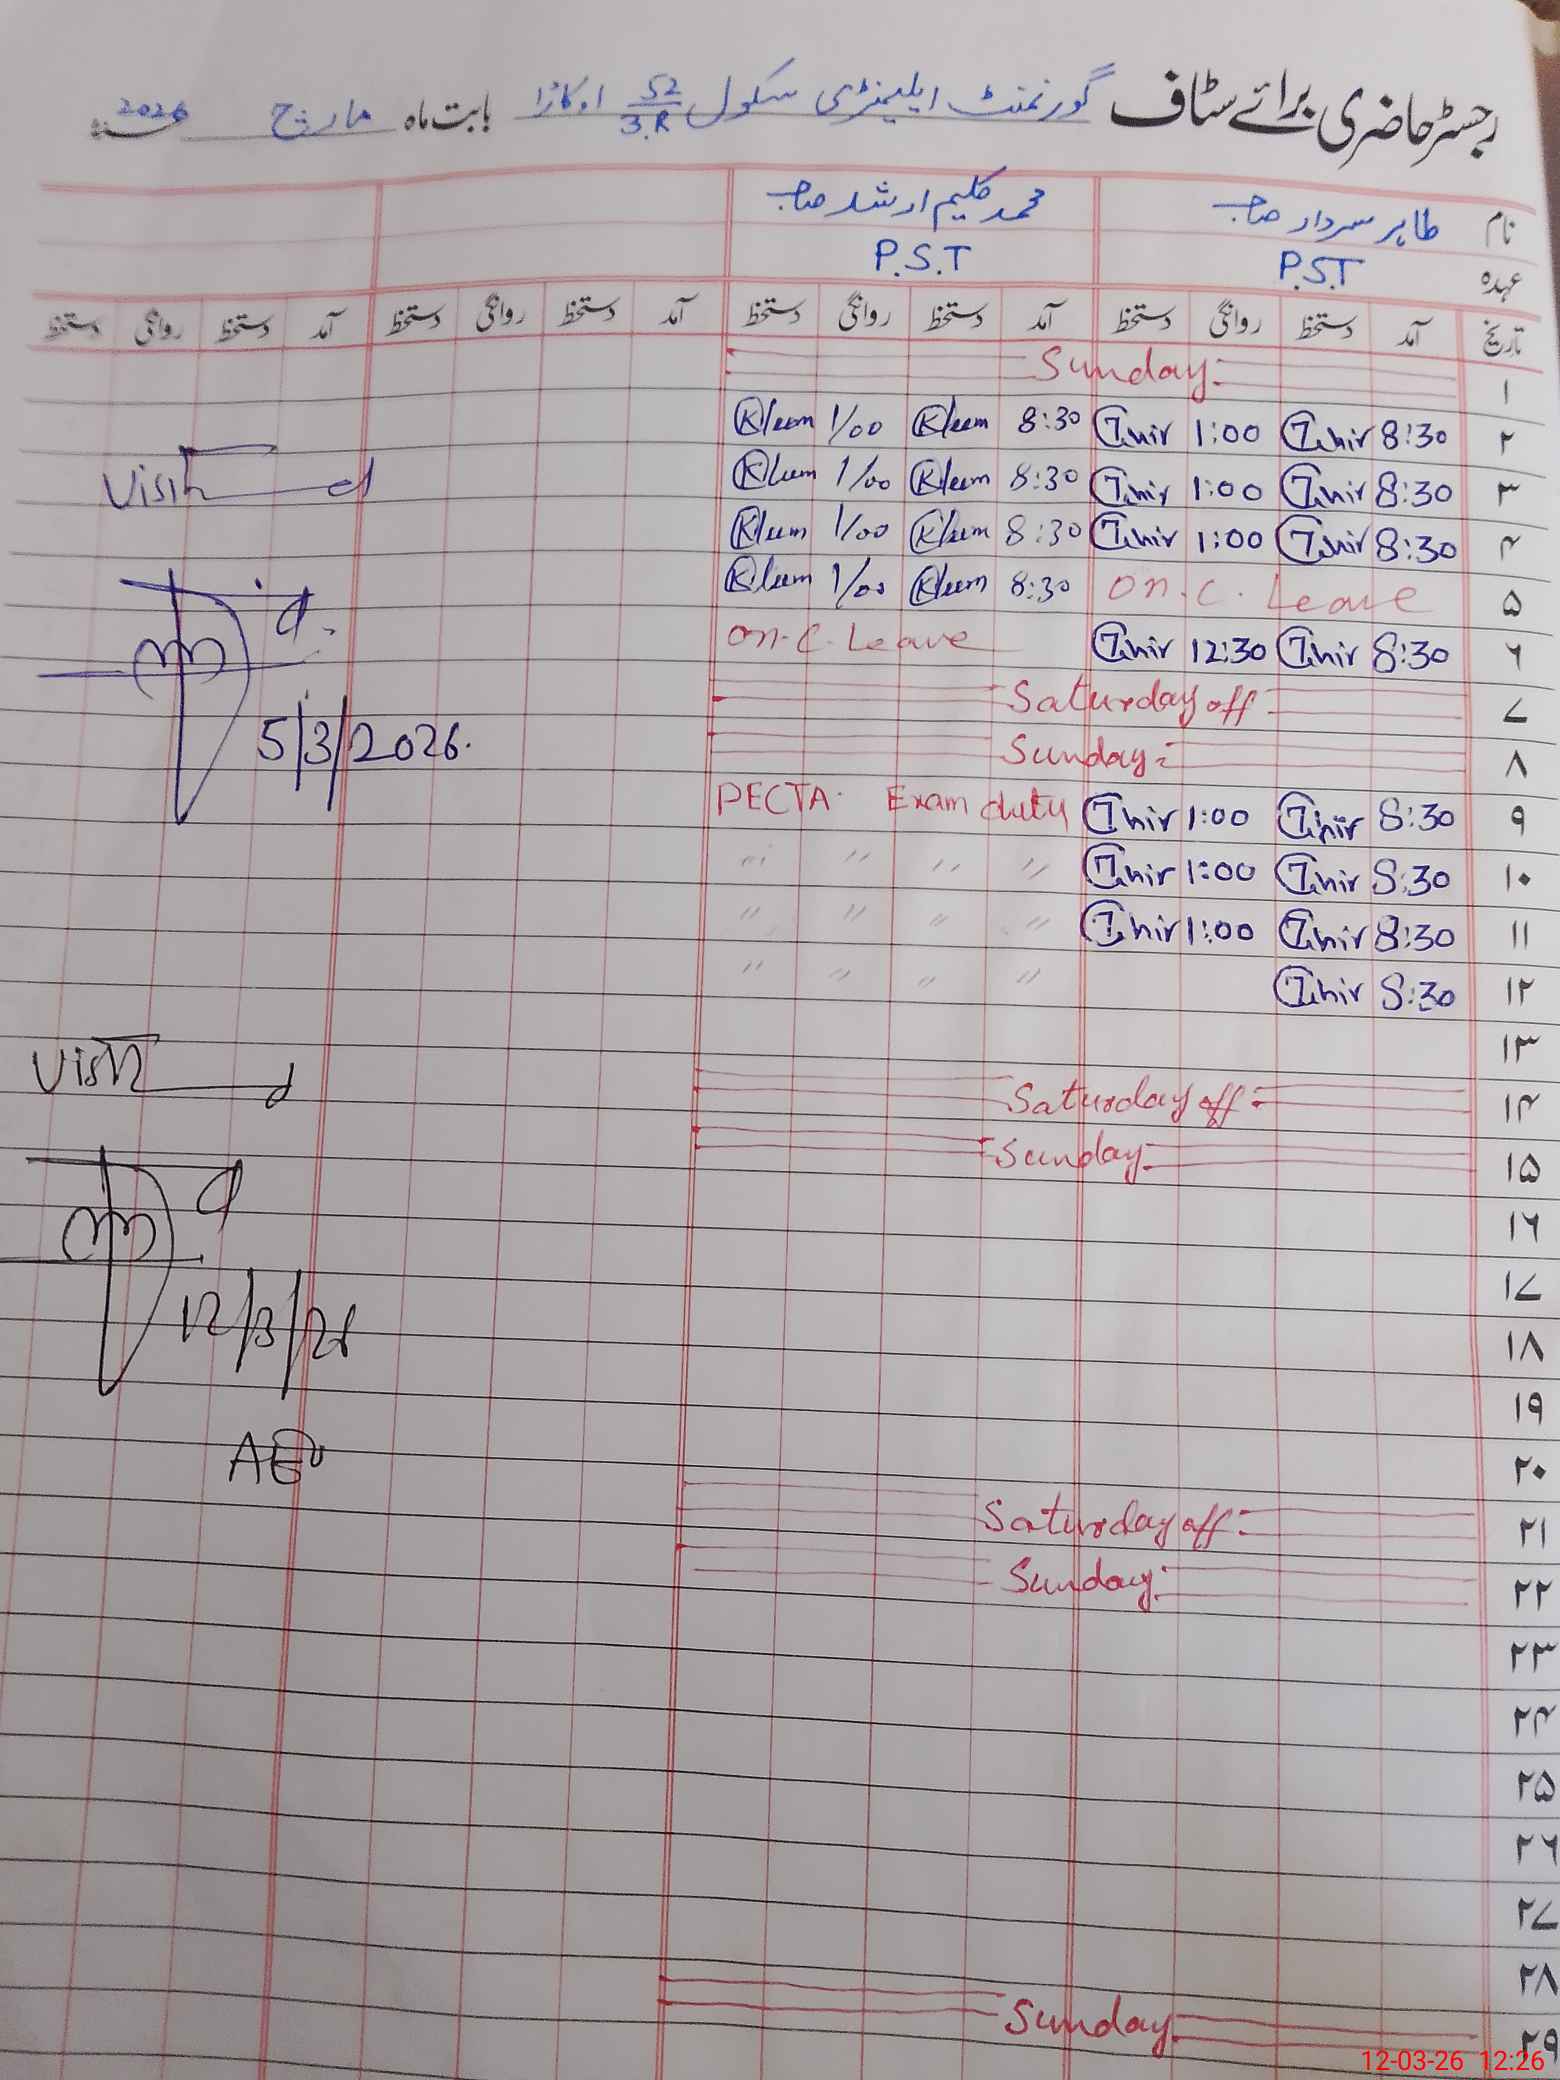 رجسٹر حاضری برائے سٹاف گورنمنٹ ایلیمنٹری سکول 52/3.R اوکاڑا بابت ماہ مارچ 2026
نام طاہر سردار صاحب محمد کلیم ارشد صاحب
عہدہ P.S.T P.S.T
تاریخ آمد دستخط روانگی دستخط آمد دستخط روانگی دستخط آمد دستخط روانگی دستخط آمد دستخط روانگی دستخط
۱ Sunday
۲ 8:30 Tahir 1:00 Tahir 8:30 Kleem 1/00 Kleem
۳ 8:30 Tahir 1:00 Tahir 8:30 Kleem 1/00 Kleem
۴ 8:30 Tahir 1:00 Tahir 8:30 Kleem 1/00 Kleem
۵ On. C. Leave 8:30 Kleem 1/00 Kleem
۶ 8:30 Tahir 12:30 Tahir On. C. Leave
۷ Saturday off
۸ Sunday
۹ 8:30 Tahir 1:00 Tahir PECTA Exam duty
۱۰ 8:30 Tahir 1:00 Tahir " " " "
۱۱ 8:30 Tahir 1:00 Tahir " " " "
۱۲ 8:30 Tahir " " " "
۱۳
۱۴ Saturday off
۱۵ Sunday
۱۶
۱۷
۱۸
۱۹
۲۰
۲۱ Saturday off
۲۲ Sunday
۲۳
۲۴
۲۵
۲۶
۲۷
۲۸
۲۹ Sunday
Visited
5/3/2026.
Visited
12/3/26
AEO
12-03-26 12:26